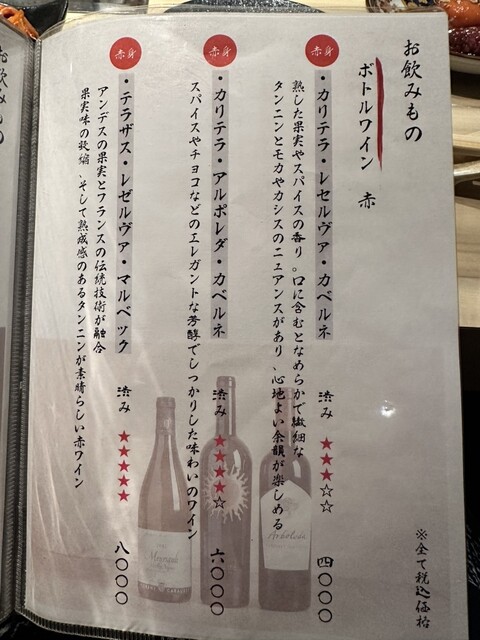 お飲みもの
ボトルワイン 赤
赤身
・カリテラ・レセルヴァ・カベルネ 渋み ★★★☆☆ 四〇〇〇
熟した果実やスパイスの香り。口に含むとなめらかで繊細な
タンニンとモカやカシスのニュアンスがあり、心地よい余韻が楽しめる
赤身
・カリテラ・アルボレダ・カベルネ 渋み ★★★★☆ 六〇〇〇
スパイスやチョコなどのエレガントな芳醇でしっかりした味わいのワイン
赤身
・テラザス・レゼルヴァ・マルベック 渋み ★★★★★ 八〇〇〇
アンデスの果実とフランスの伝統技術が融合
果実味の凝縮、そして熟成感のあるタンニンが素晴らしい赤ワイン
※全て税込価格
Arboleda
お飲みもの